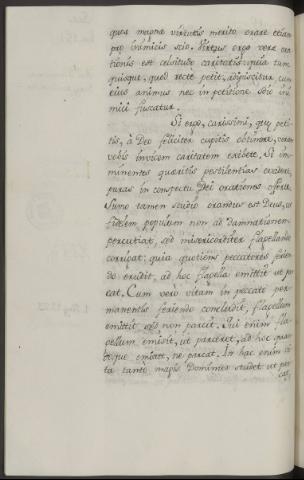 quos magnæ virtutis merito, orare etiam
pro inimicis scio. Virtus ergo veræ ora-
tionis est celsitudo caritatis: quia tunc
quisque, quod recte petit, adipiscitur, cum
eius animus nec in petitione sui ini-
mici fuscatur.
Si ergo, carissimi, quæ peti-
tis, à Deo feliciter cupitis obtinere, veram
vobis invicem caritatem exibete. Si im-
minentes quæritis pestilentias evadere,
puras in conspectu Dei orationes offerte.
Summo tamen studio orandus est Deus, ut
fidelem populum non ad damnationem
percutiat, sed misericorditer flagellando
corripat: quia quotiens peccatores ferien-
do erudit, ad hoc flagella emittit ut par
cat. Cum verò vitam in peccato per-
manentis feriendo concludit, flagellum
emittit sed non parcit. Qui enim fla-
gellum emisit, ut parceret, ad hoc quan-
doque emittit, ne parcat. In hac enim vi-
ta tantò magis Dominus studet ut par-
cat,